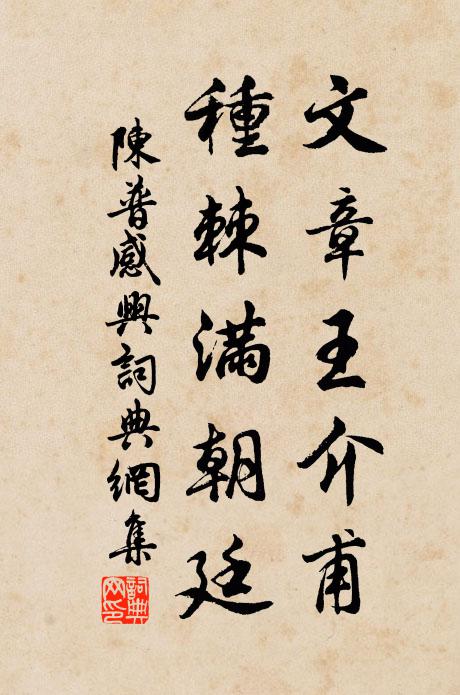 文章王介甫
種棘滿朝廷
陳普感興詞典網集
詞典網印